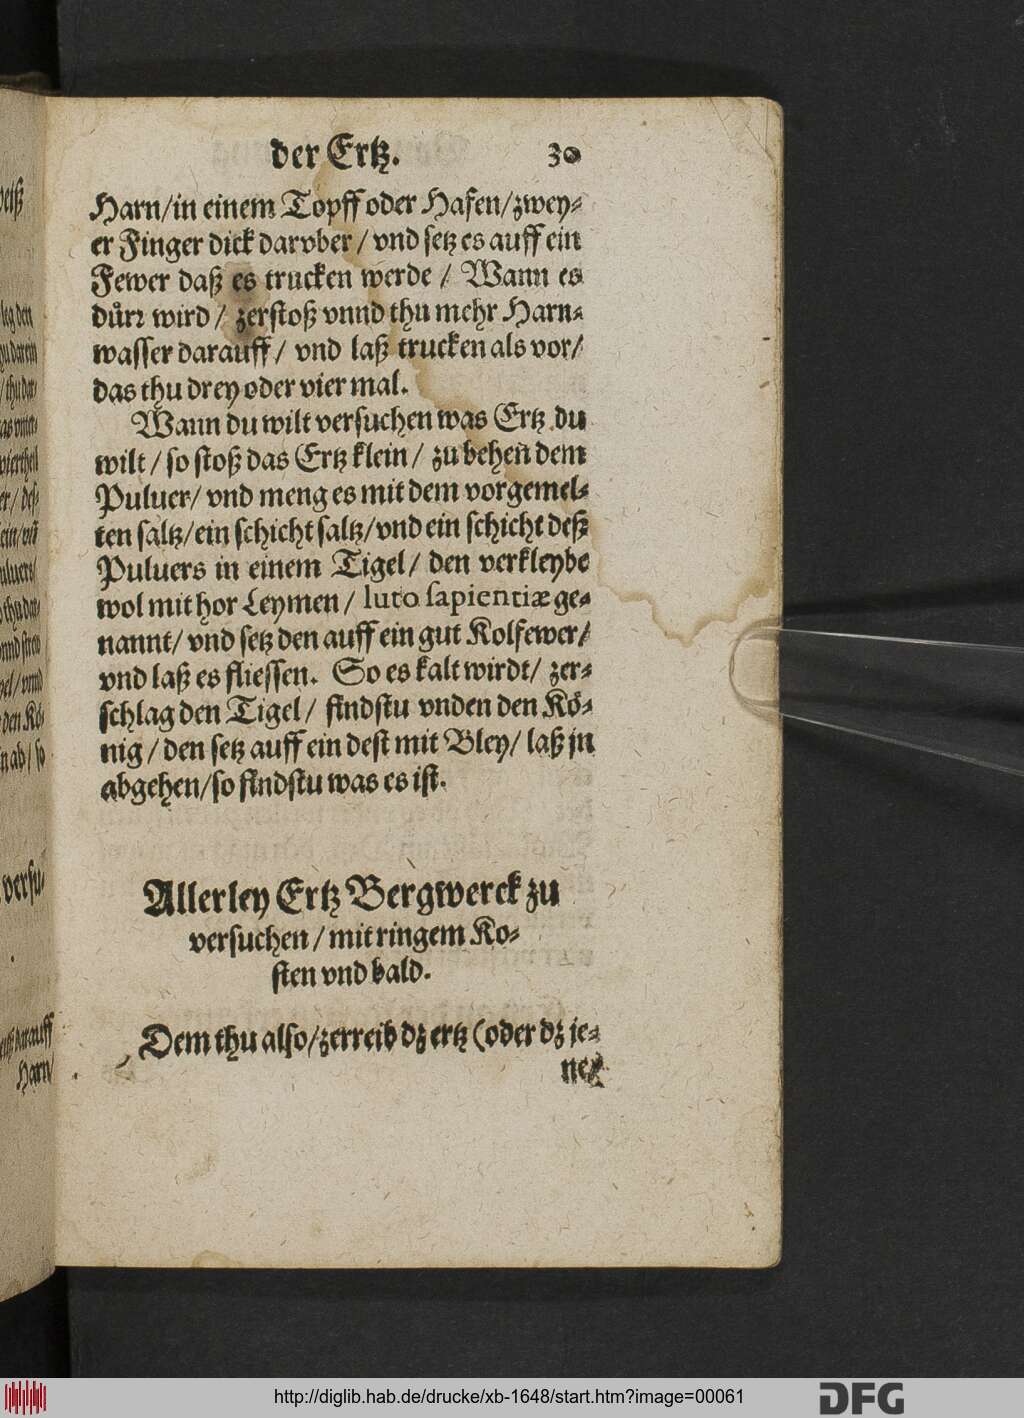 der Ertz. 30
Harn/in einem Topff oder Hafen/zwey⸗
er Finger dick darvber / vnd setz es auff ein
Fewer daß es trucken werde / Wann es
duͤrꝛ wird / zerstoß vnnd thu mehr Harn⸗
wasser darauff/ vnd laß trucken als vor/
das thu drey oder vier mal.
Wann du wilt versuchen was Ertz du
wilt / so stoß das Ertz klein / zu behen dem
Puluer/ vnd meng es mit dem vorgemel⸗
ten saltz/ein schicht saltz/vnd ein schicht deß
Puluers in einem Tigel/ den verkleybe
wol mit hor Leymen/ luto sapientiæ ge⸗
nannt/ vnd setz den auff ein gut Kolfewer/
vnd laß es fliessen. So es kalt wirdt/ zer⸗
schlag den Tigel/ findstu vnden den Kö⸗
nig / den setz auff ein dest mit Bley/ laß jn
abgehen/so findstu was es ist.
Allerley Ertz Bergwerck zu
versuchen / mit ringem Ko⸗
sten vnd bald.
Dem thu also/zerreib dz ertz (oder dz je⸗
ne/
http://diglib.hab.de/drucke/xb-1648/start.htm?image=00061
DFG